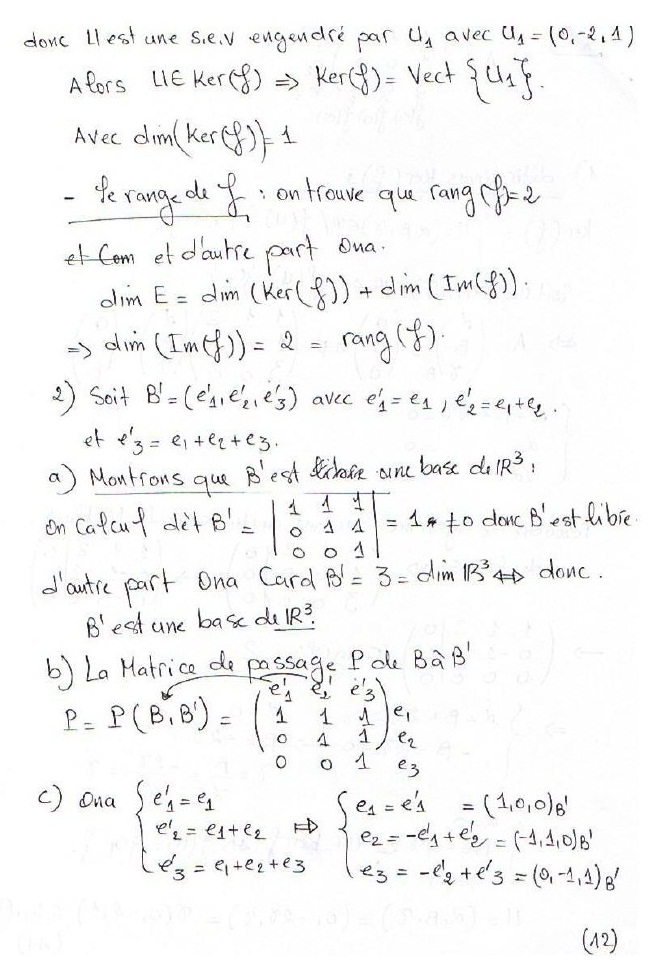 donc U est une s.e.v engendré par U1 avec U1 = (0,-2,1)
Alors U∈ Ker(f) => Ker(f) = Vect {U1}.
Avec dim(Ker(f)) = 1
- le range de f : on trouve que rang(f)=2
et Com et d'autre part Ona.
dim E = dim (Ker(f)) + dim (Im(f)).
=> dim (Im(f)) = 2 = rang(f).
2) Soit B' = (e'1, e'2, e'3) avec e'1 = e1, e'2 = e1+e2.
et e'3 = e1+e2+e3.
a) Montrons que B' est une base de IR³ :
On Calcul dèt B' = | 1 1 1 |
| 0 1 1 | = 1 ≠ 0 donc B' est libre.
| 0 0 1 |
d'autre part Ona Card B' = 3 = dim IR³ <=> donc.
B' est une base de IR³.
b) La Matrice de passage P de B à B'
e'1 e'2 e'3
P = P(B,B') = ( 1 1 1 ) e1
0 1 1 e2
0 0 1 e3
c) Ona { e'1 = e1 { e1 = e'1 = (1,0,0)B'
e'2 = e1+e2 => e2 = -e'1 + e'2 = (-1,1,0)B'
e'3 = e1+e2+e3 e3 = -e'2 + e'3 = (0,-1,1)B'
(12)